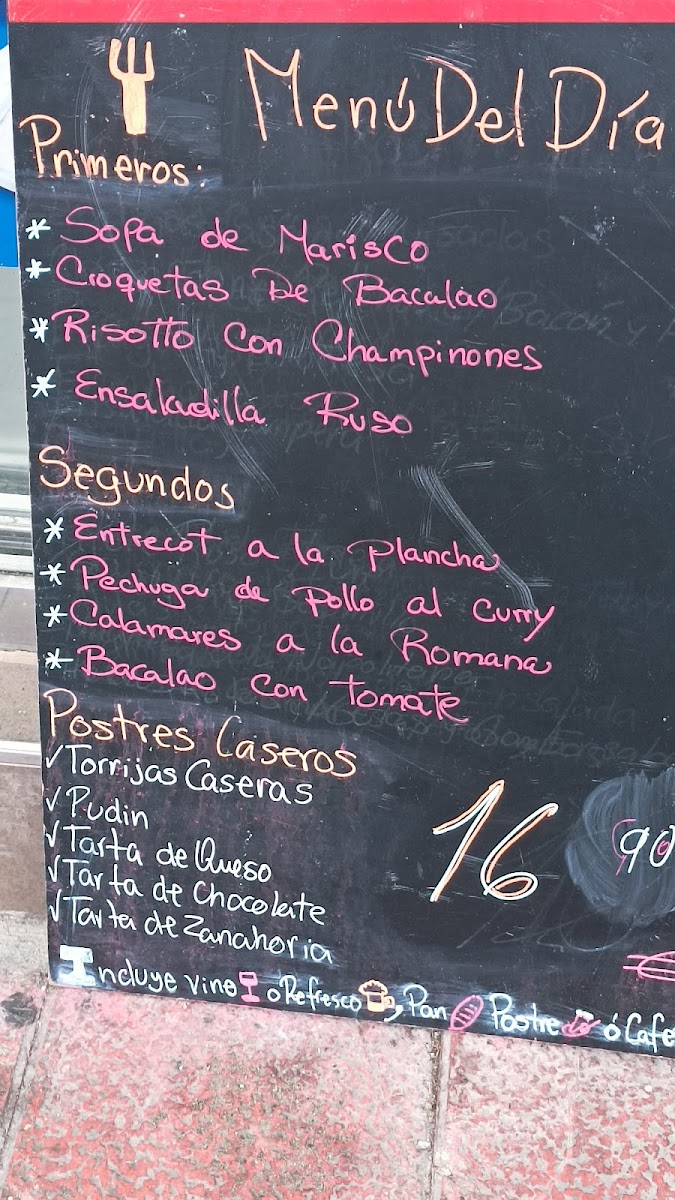 Menú Del Día
Primeros:
* Sopa de Marisco
* Croquetas De Bacalao
* Risotto Con Champinones
* Ensaladilla Ruso
Segundos
* Entrecot a la plancha
* Pechuga de pollo al curry
* Calamares a la Romana
* Bacalao con tomate
Postres Caseros
✓ Torrijas Caseras
✓ Pudin
✓ Tarta de Queso
✓ Tarta de Chocolate
✓ Tarta de Zanahoria
16 90
Incluye vino o Refresco, Pan Postre ó Cafe